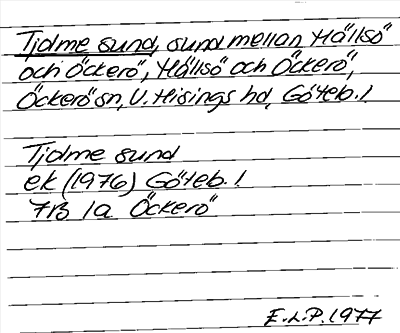 Tjolme sund, sund mellan Hällsö
och Öckerö, Hällsö och Öckerö,
Öckerö sn, V. Hisings hd, Göteb. l.
Tjolme sund
ek (1976) Göteb. l.
7B 1a Öckerö
E.L.P. 1977